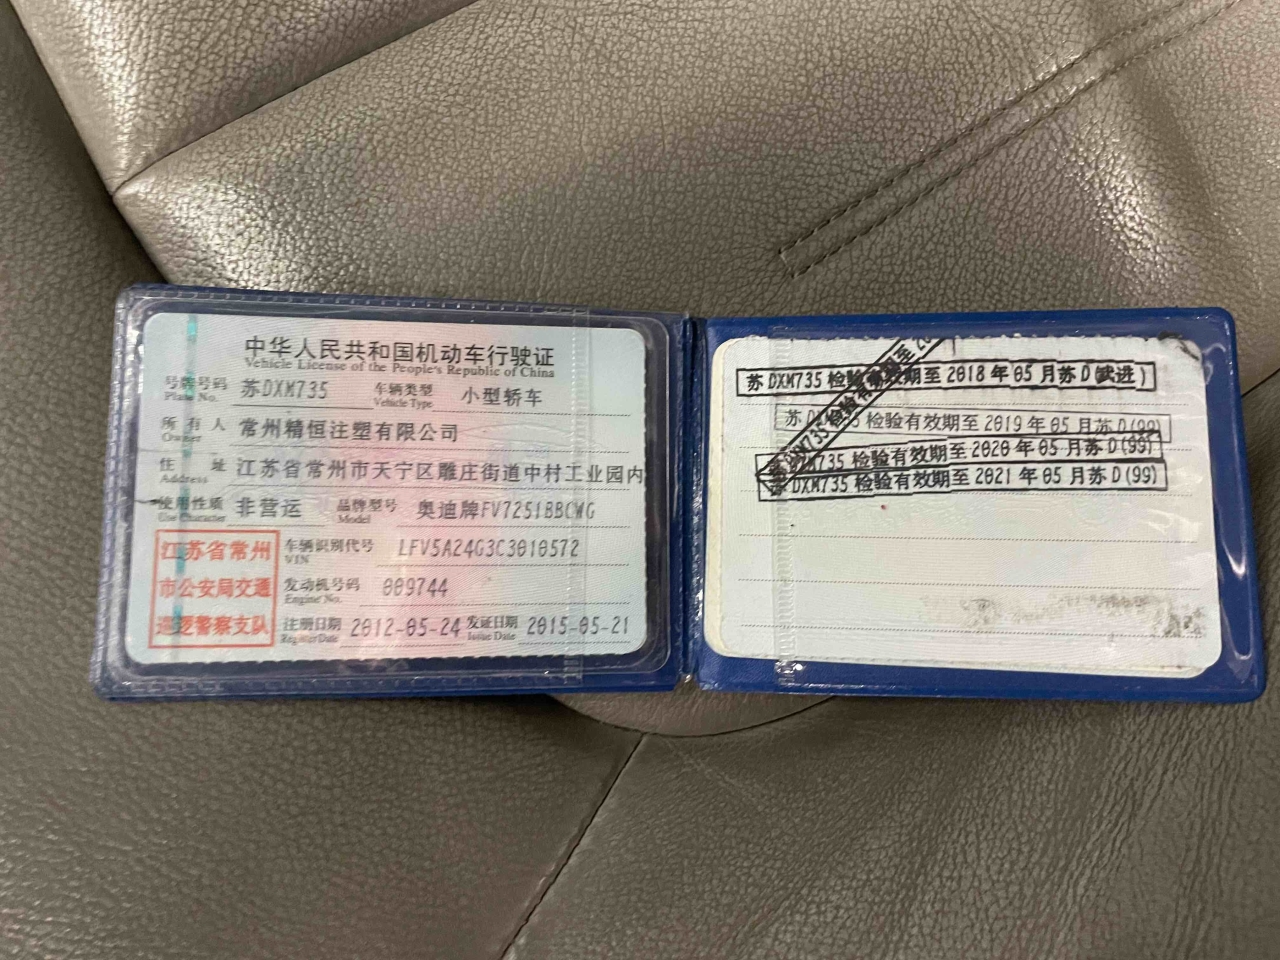 中华人民共和国机动车行驶证
Vehicle License of the People's Republic of China
号牌号码 苏DXM735 车辆类型 小型轿车
Plate No. Vehicle Type
所有人 常州精恒注塑有限公司
Owner
住址 江苏省常州市天宁区雕庄街道中村工业园内
Address
使用性质 非营运 品牌型号 奥迪牌FV7251BBCWG
Use Character Model
江苏省常州
市公安局交通
巡逻警察支队
车辆识别代号 LFV5A24G3C3010572
VIN
发动机号码 009744
Engine No.
注册日期 2012-05-24 发证日期 2015-05-21
Register Date Issue Date
苏DXM735检验有效期至2018年05月苏D(武进)
苏 检验有效期至2019年05月苏D(99)
检验有效期至2020年05月苏D(99)
DXM735检验有效期至2021年05月苏D(99)